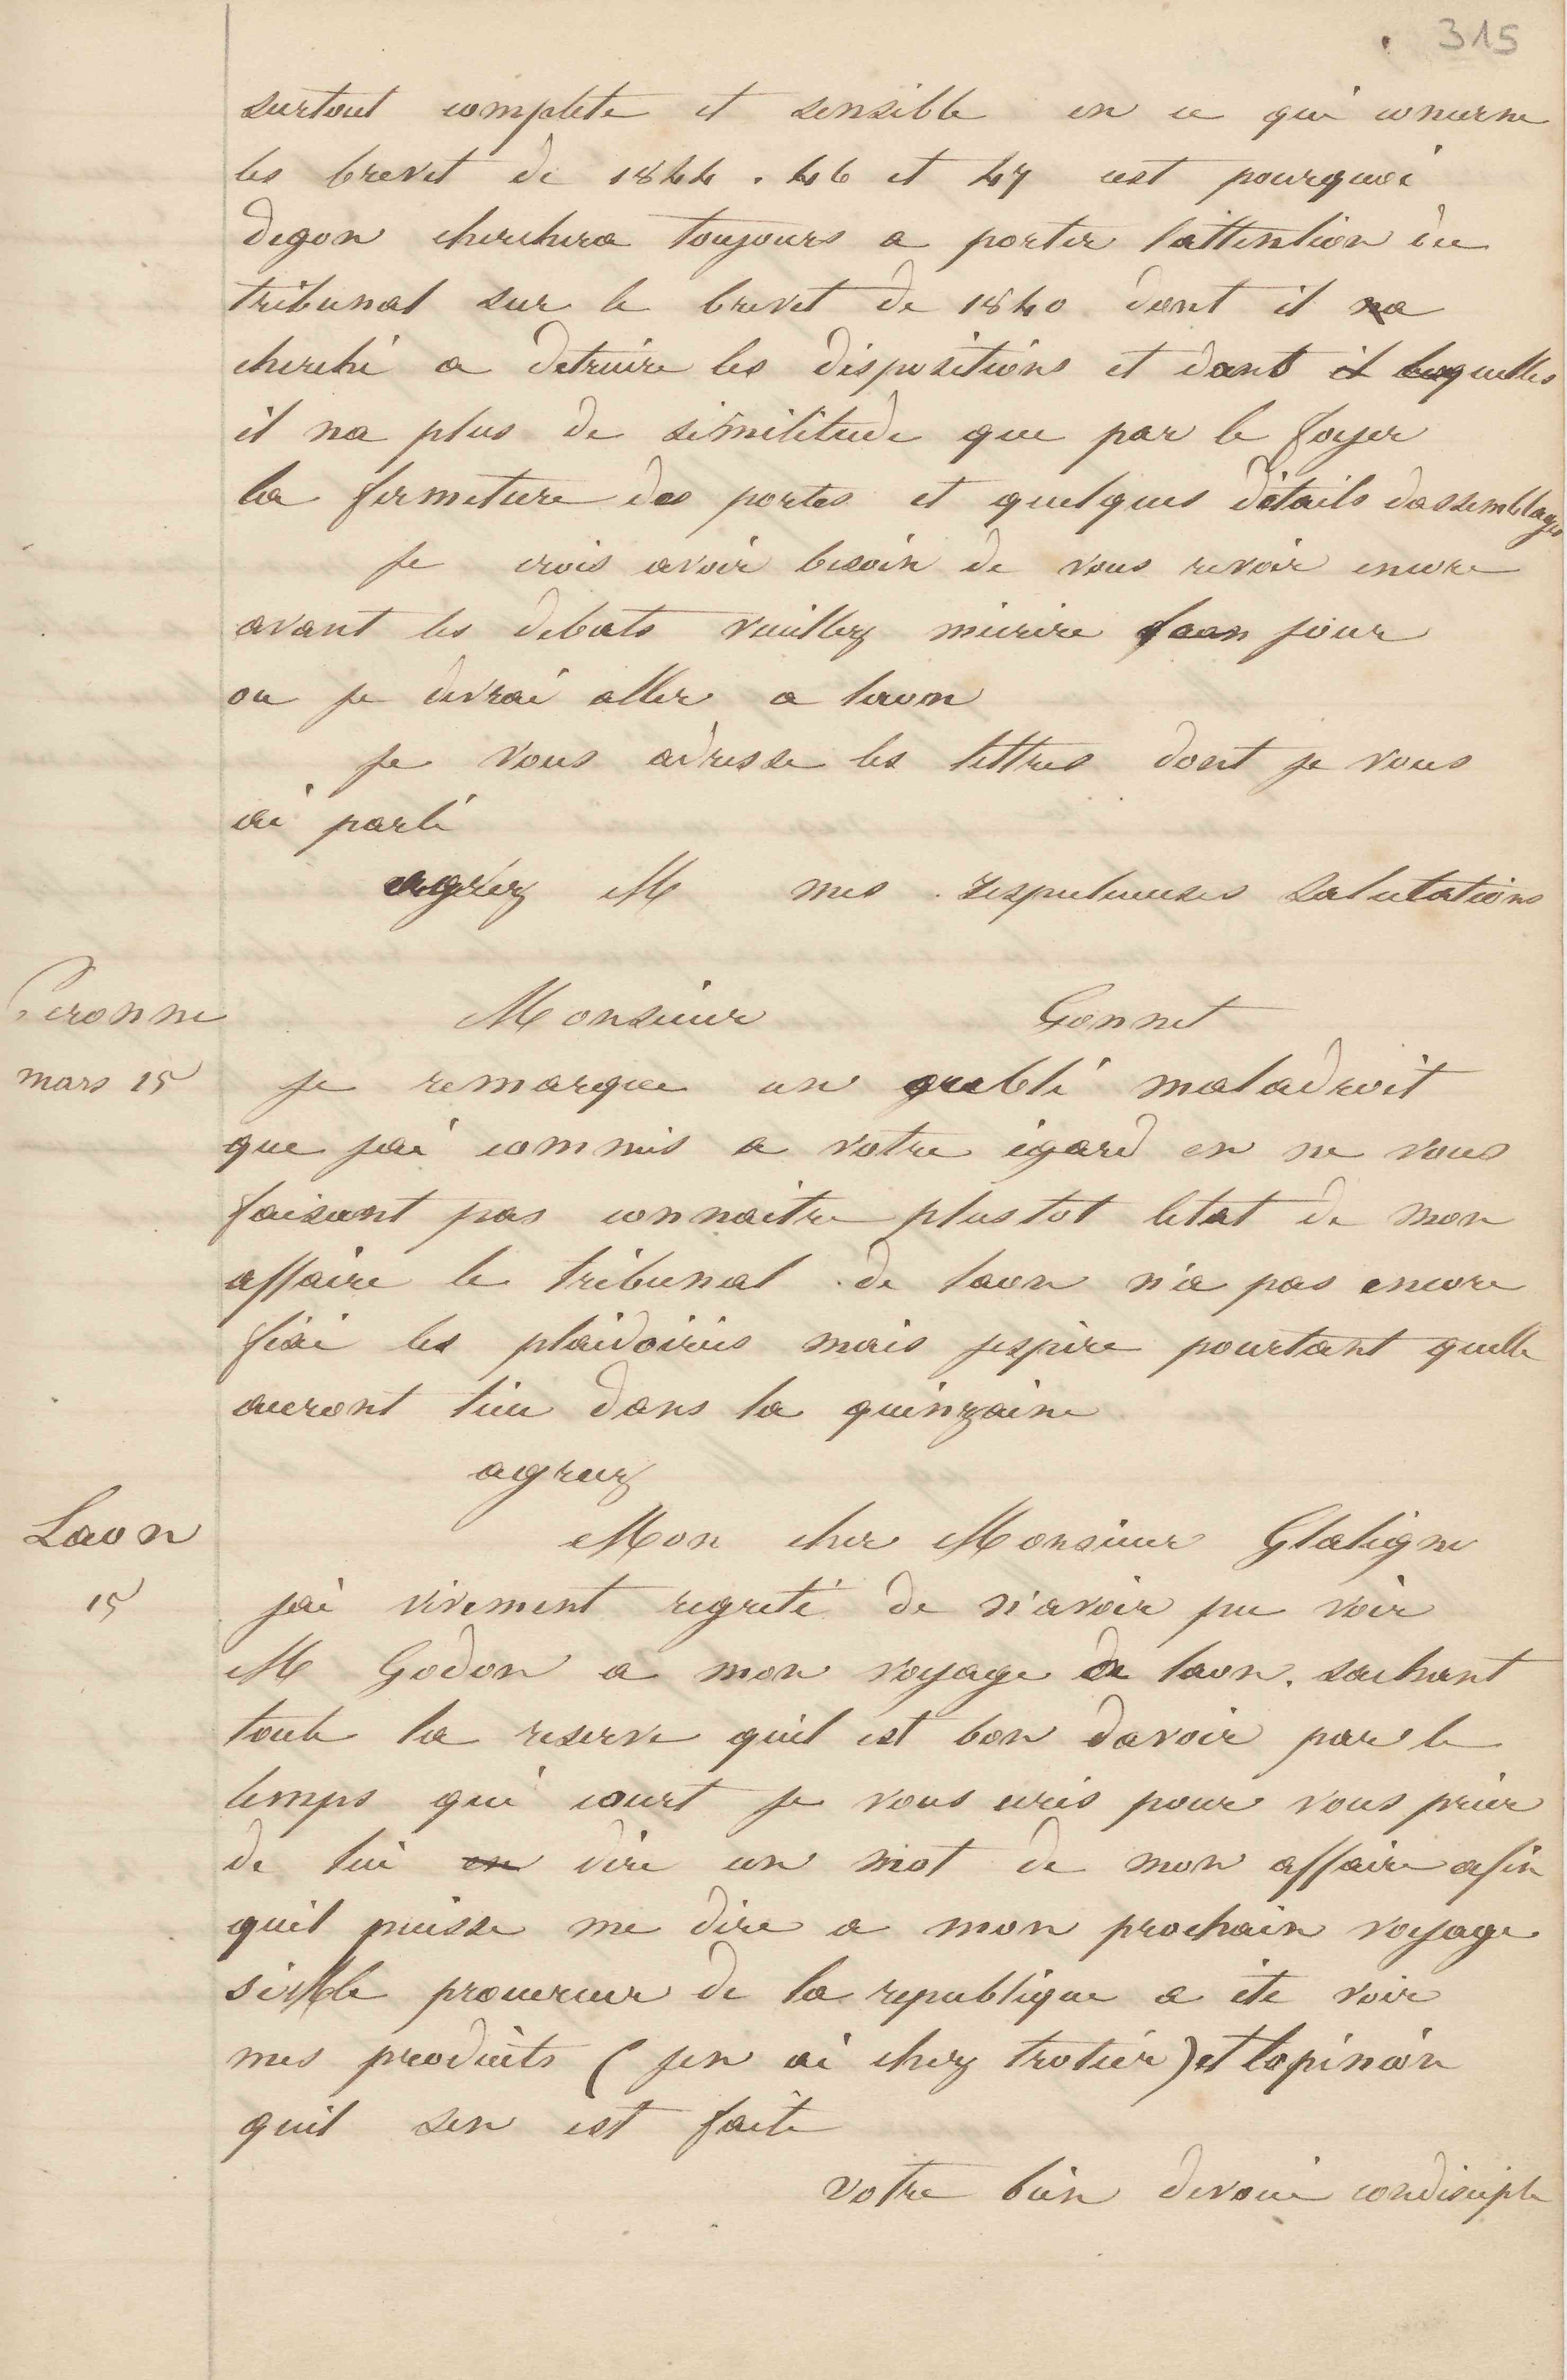 315
surtout complete et sensible en ce qui concerne
les brevet de 1844 . 46 et 47 cest pourquoi
degon cherchera toujours a porter lattention du
tribunal sur le brevet de 1840 dont il na
cherché a detruire les dispositions et dont il lesquelles
il na plus de similitude que par le foyer
la fermeture des portes et quelques détails dassemblages
je crois avoir besoin de vous revoir encore
avant les debats veuillez mecrire jour
ou je devrai aller a laon
je vous adresse les lettres dont je vous
ai parlé
agréez M mes respectueuses salutations
Peronne
Monsieur Gonnet
mars 15
je remarque un oublié maladroit
que jai commis a votre égard en ne vous
faisant pas connaitre plustot letat de mon
affaire le tribunal de laon n'a pas encore
fixé les plaidoiries mais jespère pourtant quelle
auront lieu dans la quinzaine
agreez
Laon
Mon cher Monsieur Glatigne
15
jai vivement regreté de n'avoir pu voir
M Godon a mon voyage de laon. sachant
toute la reserve quil est bon davoir par le
temps qui court je vous ecris pour vous prier
de lui en dire un mot de mon affaire afin
quil puisse me dire a mon prochain voyage
si le procureur de la republique a été voir
mes produits ( jen ai chez trotier) et lopinion
quil sen est faite
votre bien devoué condisciple